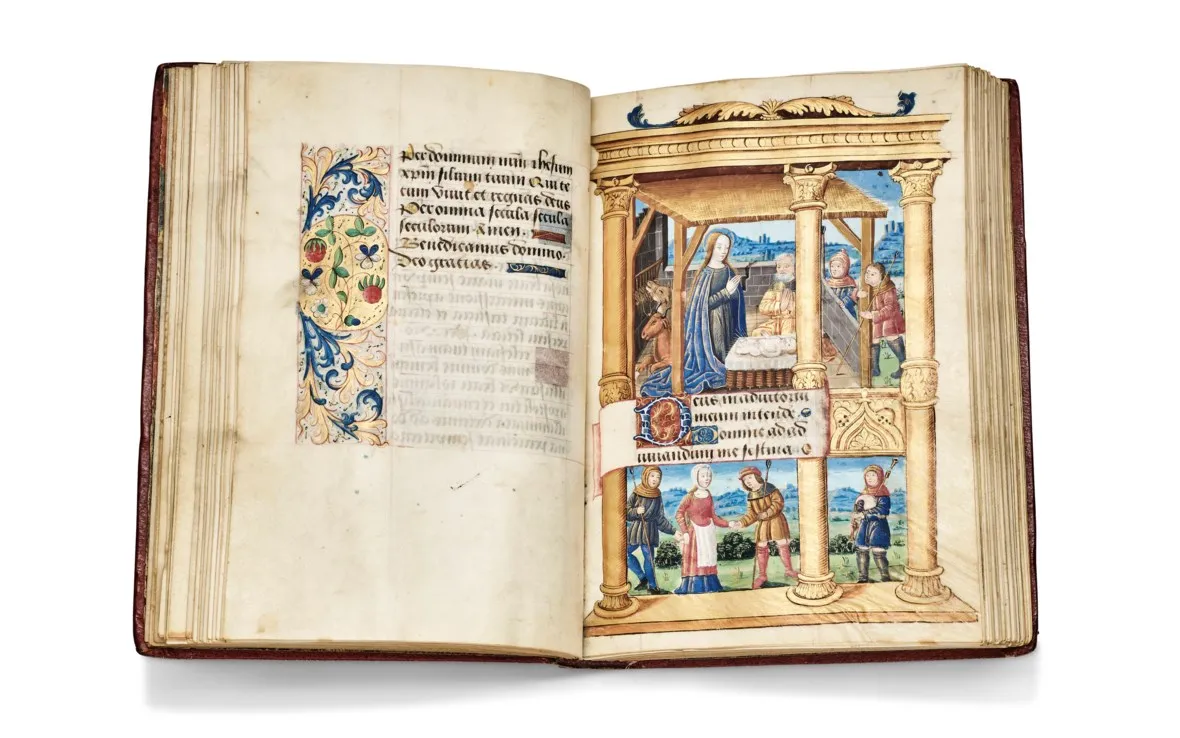 Per dominum nrm ihesum
xpm filium tuum Qui te
cum viuit et regnas deus
Per omnia secula secula
seculorum Amen.
Benedicamus domino.
Deo gratias
Deus in adiutoriu
meum intende
Domine ad ad
iuuandum me festina